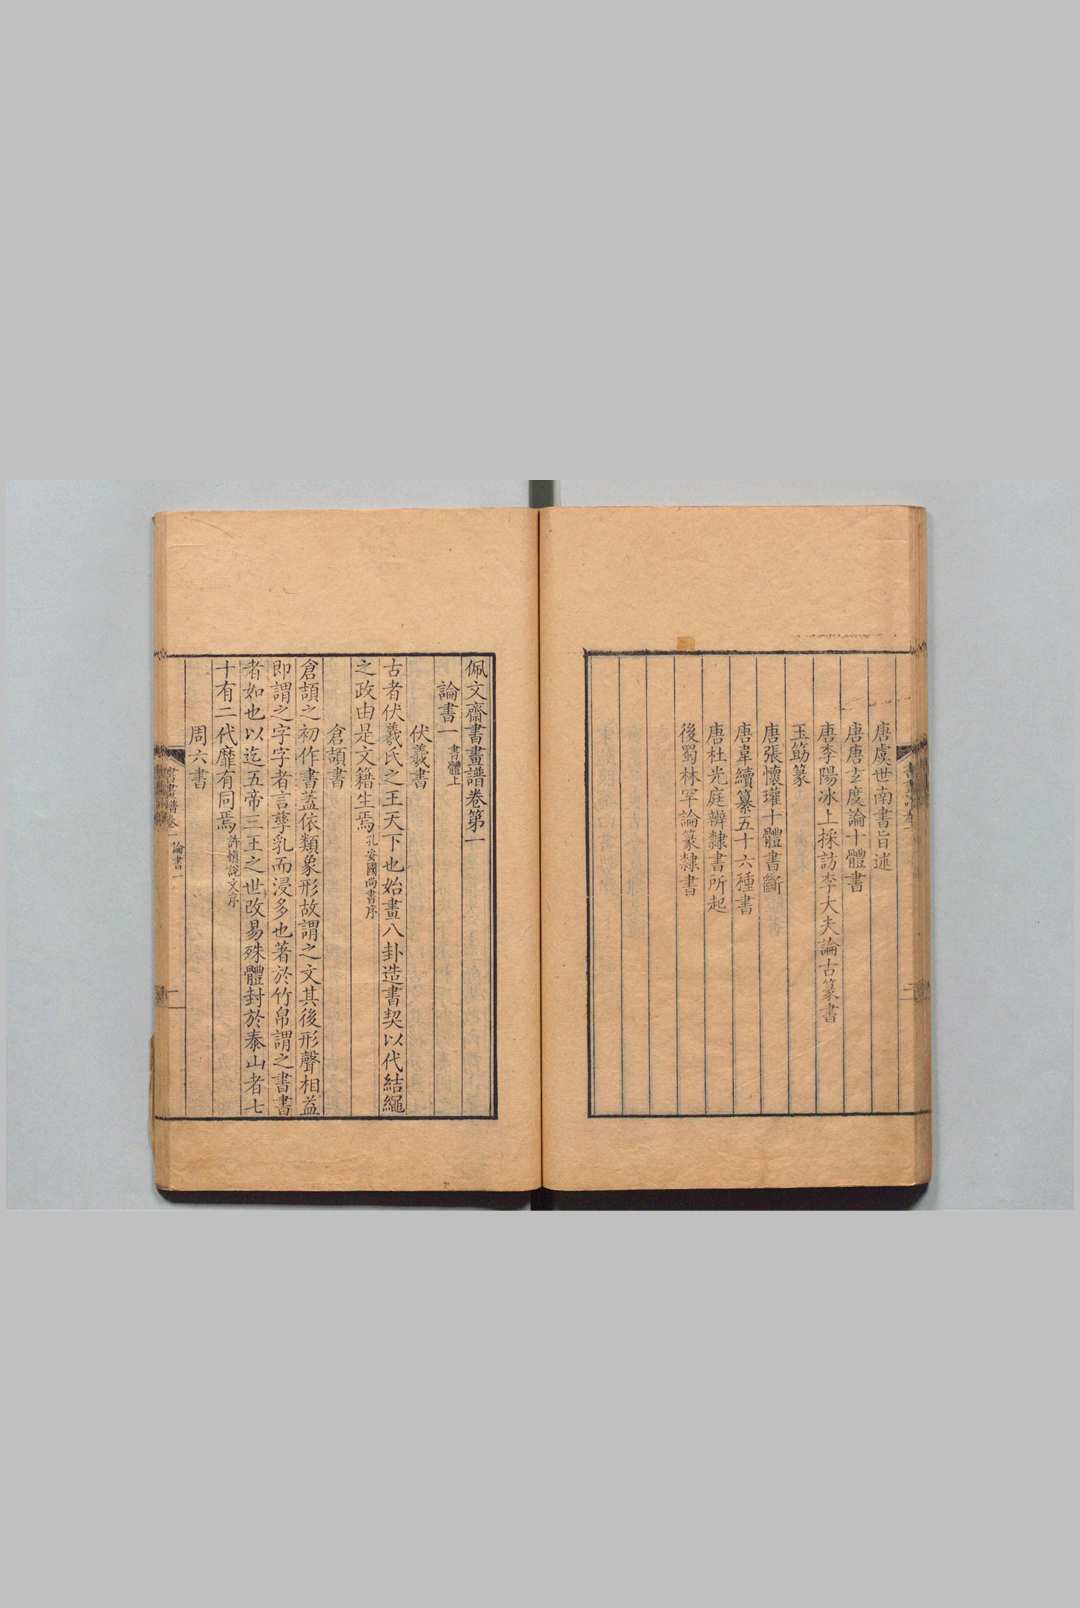 唐虞世南書旨述
唐唐玄度論十體書
唐李陽冰上採訪李大夫論古篆書
玉筯篆
唐張懷瓘十體書斷
唐韋續纂五十六種書
唐杜光庭辨隸書所起
後蜀林罕論篆隸書
佩文齋書畫譜卷第一
論書一 書體上
伏羲書
古者伏羲氏之王天下也始畫八卦造書契以代結繩
之政由是文籍生焉 孔安國尚書序
倉頡書
倉頡之初作書蓋依類象形故謂之文其後形聲相益
即謂之字字者言孳乳而浸多也著於竹帛謂之書書
者如也以迄五帝三王之世改易殊體封於泰山者七
十有二代靡有同焉 許慎說文序
周六書
書畫譜卷一 論書一
二